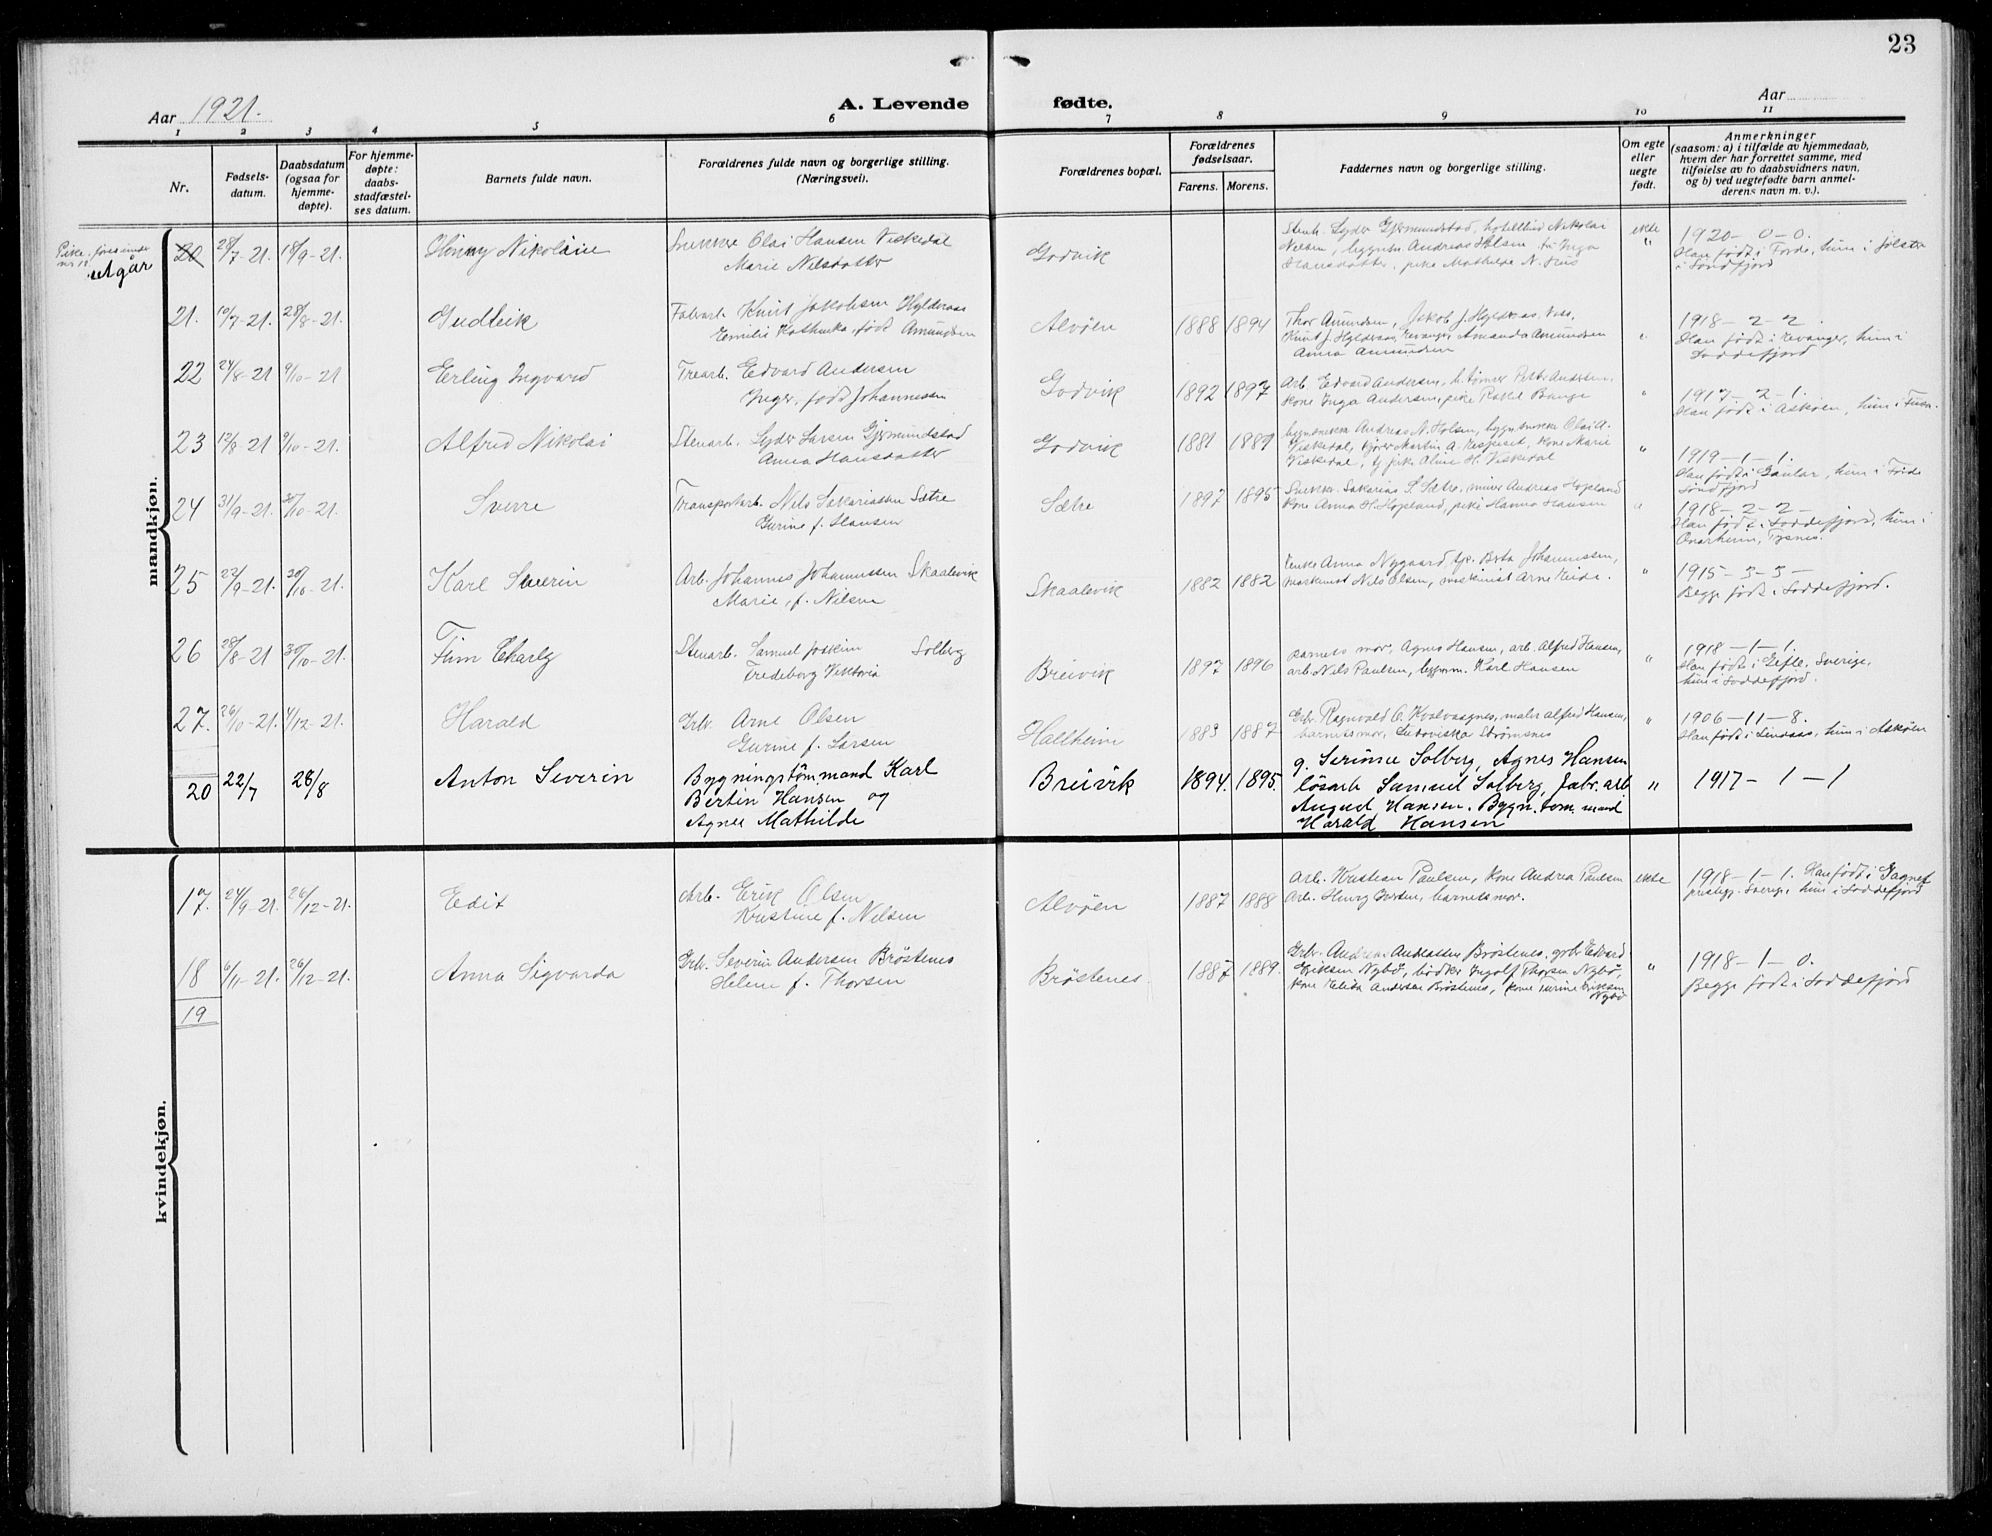 23
Aar 1921.
A. Levende fødte.
Aar
1 2 3 4 5 6 7 8 9 10 11
Nr.
Fødsels-
datum.
Daabsdatum
(ogsaa for
hjemme-
døpte).
For hjemme-
døpte:
daabs-
stadfæstel-
ses datum.
Barnets fulde navn.
Forældrenes fulde navn og borgerlige stilling.
(Næringsvei).
Forældrenes bopæl.
Forældrenes
fødselsaar.
Farens. Morens.
Faddernes navn og borgerlige stilling.
Om egte
eller
uegte
født.
Anmerkninger
(saasom: a) i tilfælde av hjemmedaab,
hvem der har forrettet samme, med
tilføielse av to daabsvidners navn,
og b) ved uegtefødte barn anmel-
derens navn m. v.).
mandkjøn.
Pike
utgår
20 28/7-21. 18/9-21.
Hinny Nikolaie
Snekker Olai Hansen Viskedal
Marie Nilsdatter
Godvik
Stenh. Syder Gjermundstad, Nikolai
Nilsen, bygnsn. Andreas Holsen, Inga
Hansdatter, pike Mathilde N. Hus
ekte
"
1920-0-0.
Han født i Førde, hun i Jølster
i Søndfjord
21. 10/7-21. 28/8-21.
Gudleik
Fabarb. Knut Jakobsen Hylderaas
Emilie Kathinka, født Amundsen
Alvøen
1888 1894
Thor Amundsen, Jakob J. Hylderaas, Voss,
Knut J. Hylderaas, Evanger, Amanda Amundsen
Anna Amundsen
"
1918-2-2.
Han født i Evanger, hun i
Loddefjord
22 24/8-21 9/10-21
Erling Ingvard
Trearb. Edvard Andersen
Inger, født Johannessen
Godvik
1892 1897
Arb. Edvard Andersen, Petter Andersen,
kone Inga Andersen, pike Rakel Bauge
"
1917-2-1.
Han født i Askøen, hun i Fusa.
23 12/8-21 9/10-21.
Alfred Nikolai
Stenarb. Syder Larsen Gjermundstad
Anna Hansdatter
Godvik
1881 1887
bygnsnekker Andreas N. Holsen, bygnsnekker Olai A.
Viskedal, Martin A. kone Marie
Viskedal, pike Aline H. Viskedal
"
1919-1-1.
Han født i Gaular, hun i Førde
Søndfjord
24 31/9-21. 30/10-21.
Sverre
Transportarb. Nils Sakariassen Sætre
Gurine f. Hansen
Sætre
1897 1895
Snekker Sakarias S. Sætre, Andreas Hopeland
kone Anna H. Hopeland, pike Hanna Hansen
"
1918-2-2-
Han født i Loddefjord, hun i
Onarheim, Tysnes.
25 22/9-21. 30/10-21.
Karl Severin
Arb. Johannes Johannessen Skaalevik
Marie, f. Nilsen
Skaalevik
1882 1882
Enke Anna Nygaard, Berta Johannessen,
maskinist Nils Olsen, maskinist Arne Eide.
"
1915-3-3-
Begge født i Loddefjord.
26 28/8-21 30/10-21.
Finn Charly
Stenarb. Samuel Joakim Solberg
Fredeborg Viktoria
Breivik
1897 1896
Barnets mor, Agnes Hansen, arb. Alfred Hansen,
arb. Nils Paulsen, Karl Hansen
"
1918-1-1.
Han født i Gefle, Sverige,
hun i Loddefjord.
27. 26/10-21. 4/12-21.
Harald
Grb. Arne Olsen
Gurine f. Larsen
Hallheim
1883 1887
Grb. Ragnvald O. Kvalvaagnes, maler Alfred Hansen,
barnets mor, Ludoviska Strømsnes
"
1906-11-8.
Han født i Lindaas, hun i Askøen
20 22/7 28/8
Anton Severin
Bygningstømmand Karl
Bertin Hansen og
Agnes Mathilde
Breivik
1894. 1895.
g. Serinne Solberg, Agnes Hansen
løsarb Samuel Solberg, Fabr. arb
August Hansen. Bygn. tøm. mand
Harald Hansen
"
1917-1-1
kvindekjøn.
17. 24/9-21. 26/12-21.
Edit
Arb. Erik Olsen
Kristine f. Nilsen
Alvøen
1887 1888
Arb. Kristian Paulsen, kone Andrea Paulsen
Arb. Henry Iversen, barnets mor.
ekte
1918-1-1. Han født i Gagnef
prestegj. Sverige, hun i Loddefjord
18 6/11-21. 26/12-21.
Anna Sigvarda
Grb. Severin Andersen Brøstenes
Helene f. Thorsen
Brøstenes.
1887 1889.
Grb. Andreas Andersen Brøstenes, grb. Edvard
Eriksen Nybø, bødker Ingolf Thorsen Nybø,
kone Elida Andersen Brøstenes, kone Turine Eriksen
Nybø
"
1918-1-0.
Begge født i Loddefjord
19